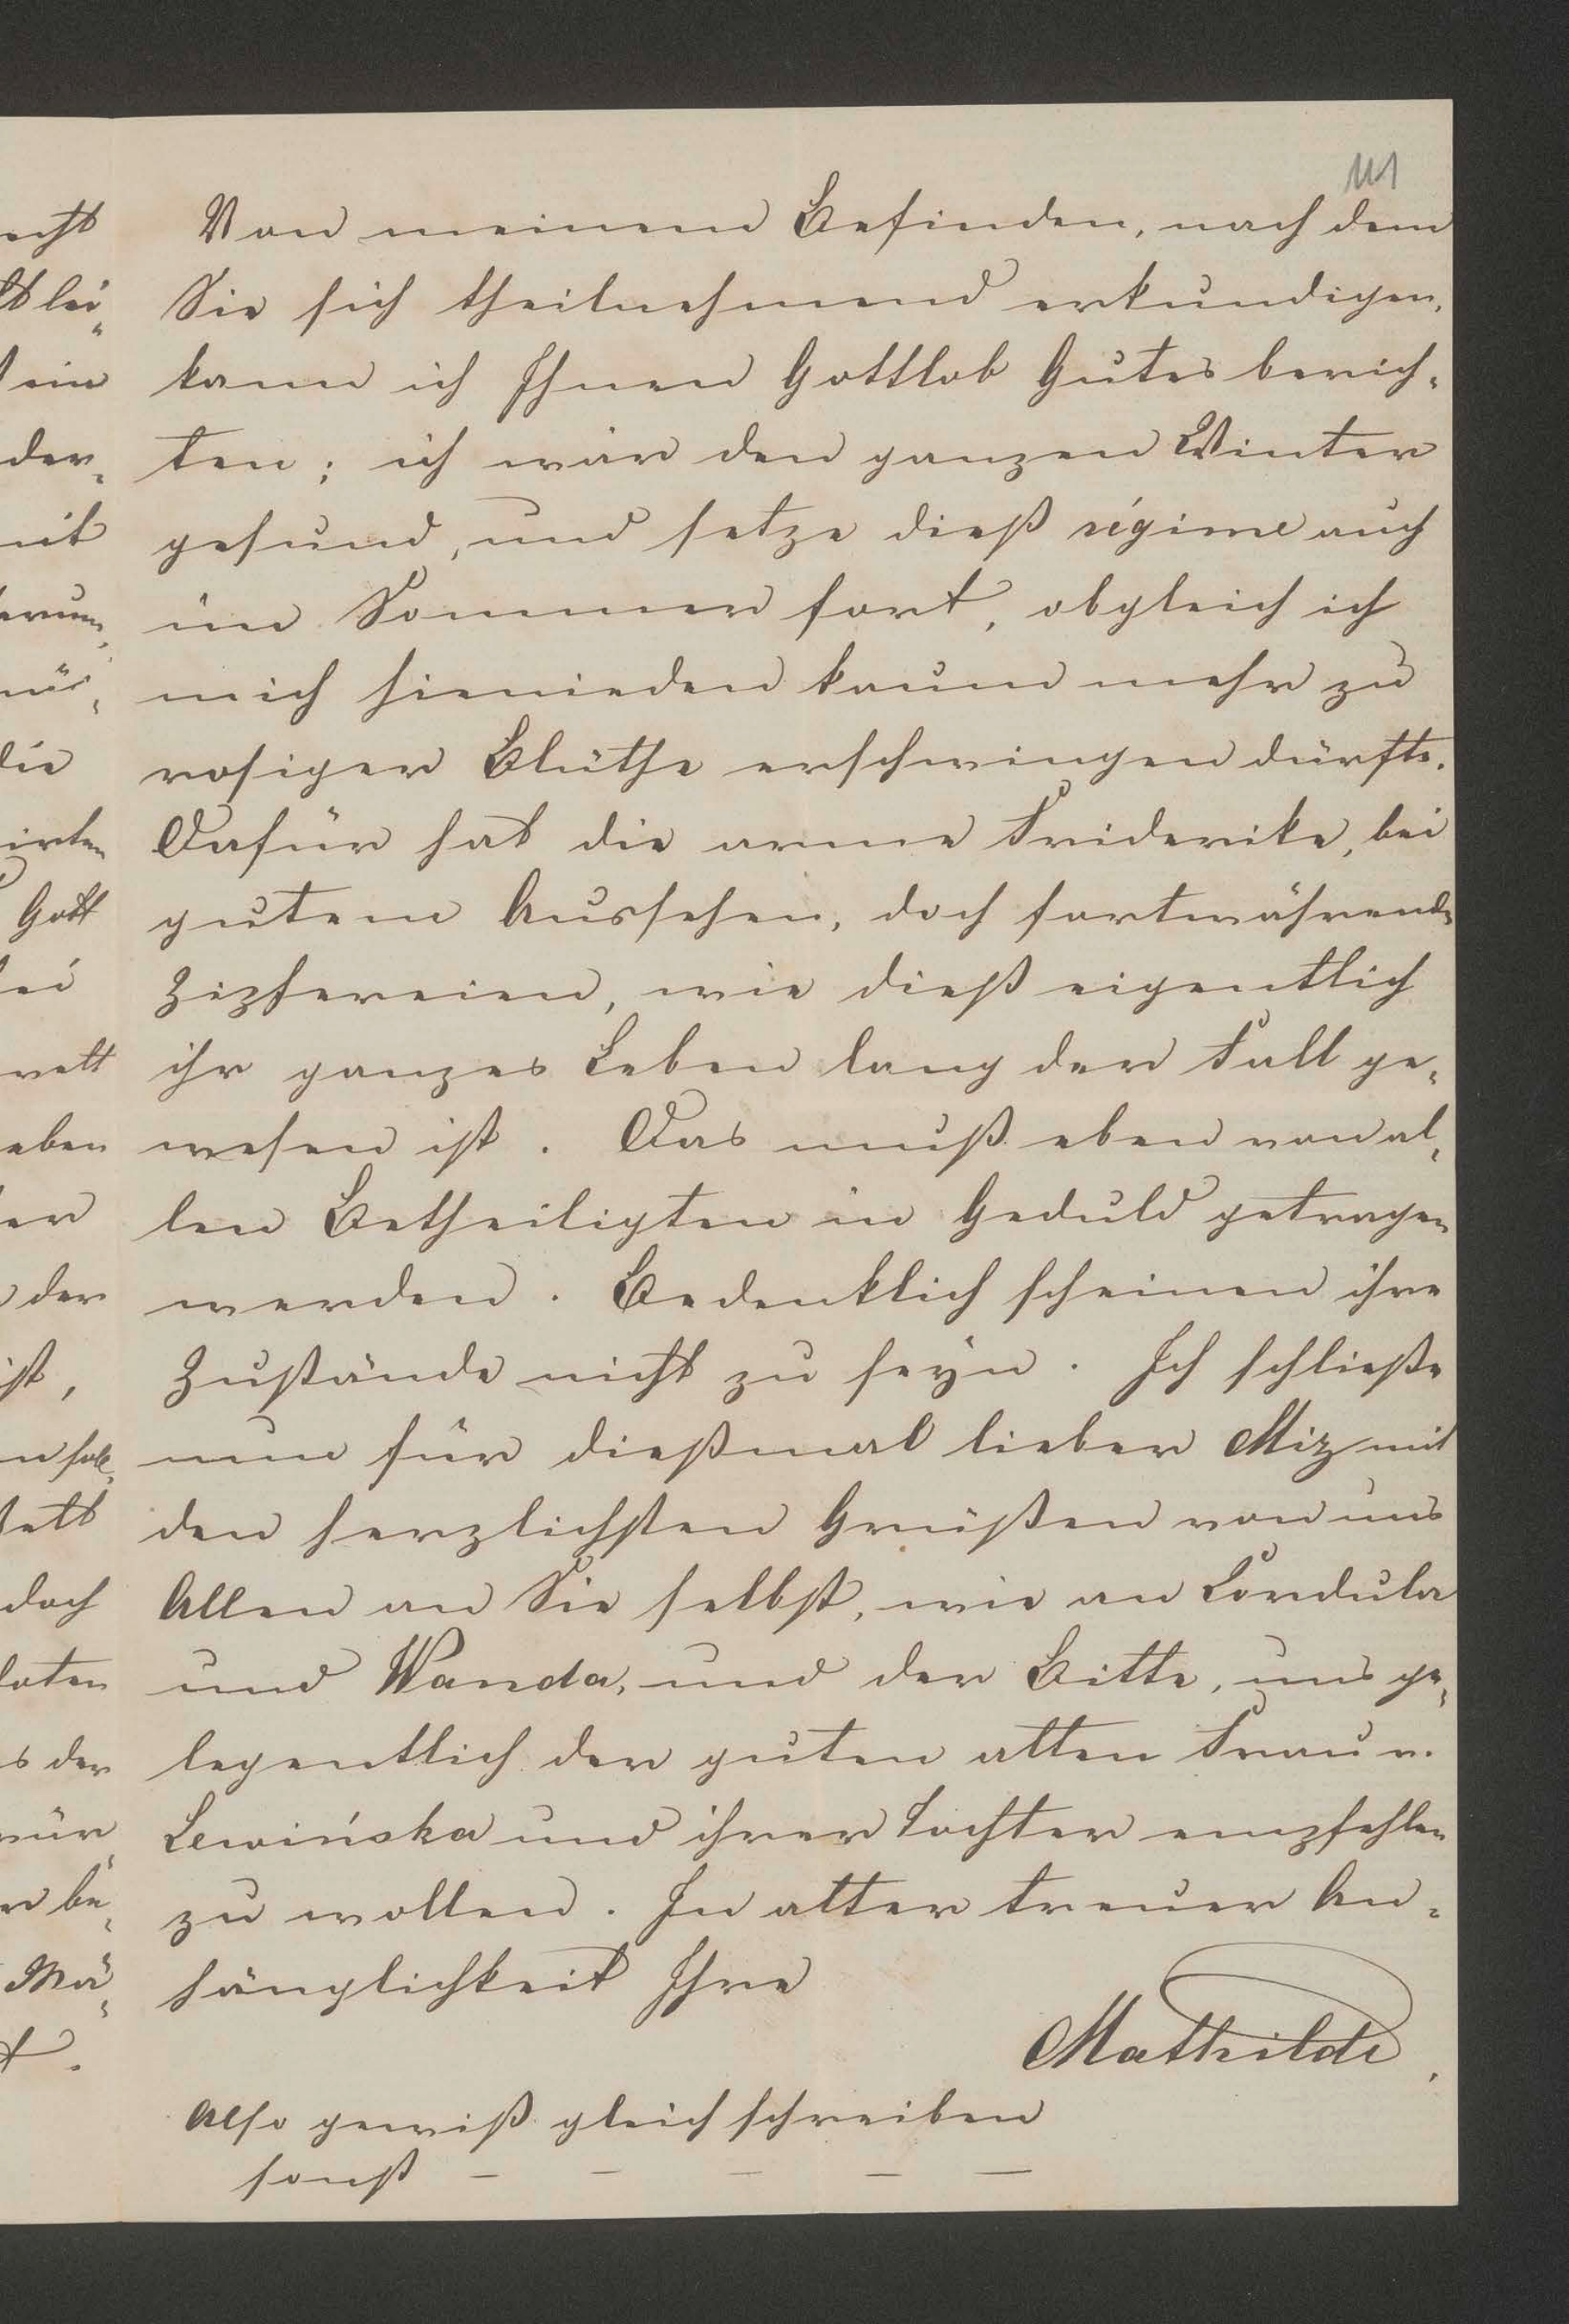 111
Von meinem Befinden, nach dem
Sie sich theilnehmend erkundigen,
kann ich Ihnen Gottlob Gutes berich-
ten; ich war den ganzen Winter
gesund, und setze dieß régime auch
im Sommer fort, obgleich ich
mich hienieden kaum mehr zu
rosiger Blüthe erschwingen dürfte.
Dafür hat die arme Friderike, bei
gutem Aussehen, doch fortwährende
Zipfereien, wie dieß eigentlich
ihr ganzes Leben lang der Fall ge-
wesen ist. Das muß eben von al-
len Betheiligten in Geduld getragen
werden. Bedenklich scheinen ihre
Zustände nicht zu seyn. Ich schließe
nun für dießmal lieber Miz mit
den herzlichsten Grüßen von uns
Allen an Sie selbst, wie an Cordula
und Wanda, und der Bitte, uns ge-
legentlich der guten alten Frau v.
Lewińska und ihrer Tochter empfehlen
zu wollen. In alter treuer An-
hänglichkeit Ihre
Mathilde.
Also gewiß gleich schreiben
sonst – – – – –